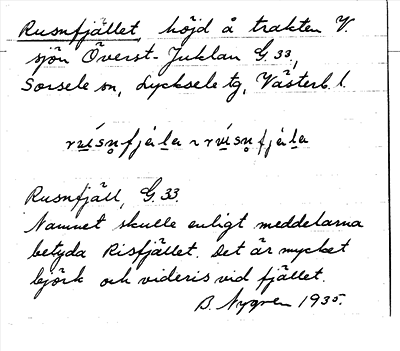 Rusnfjället, höjd å trakten V.
sjön Överst-Juklan G.33,
Sorsele sn, Lycksele tg, Västerb. l.
Rusnfjäll, G.33.
Namnet skulle enligt meddelarna
betyda Risfjället. Det är mycket
björk och videris vid fjället.
B. Nygren 1935.